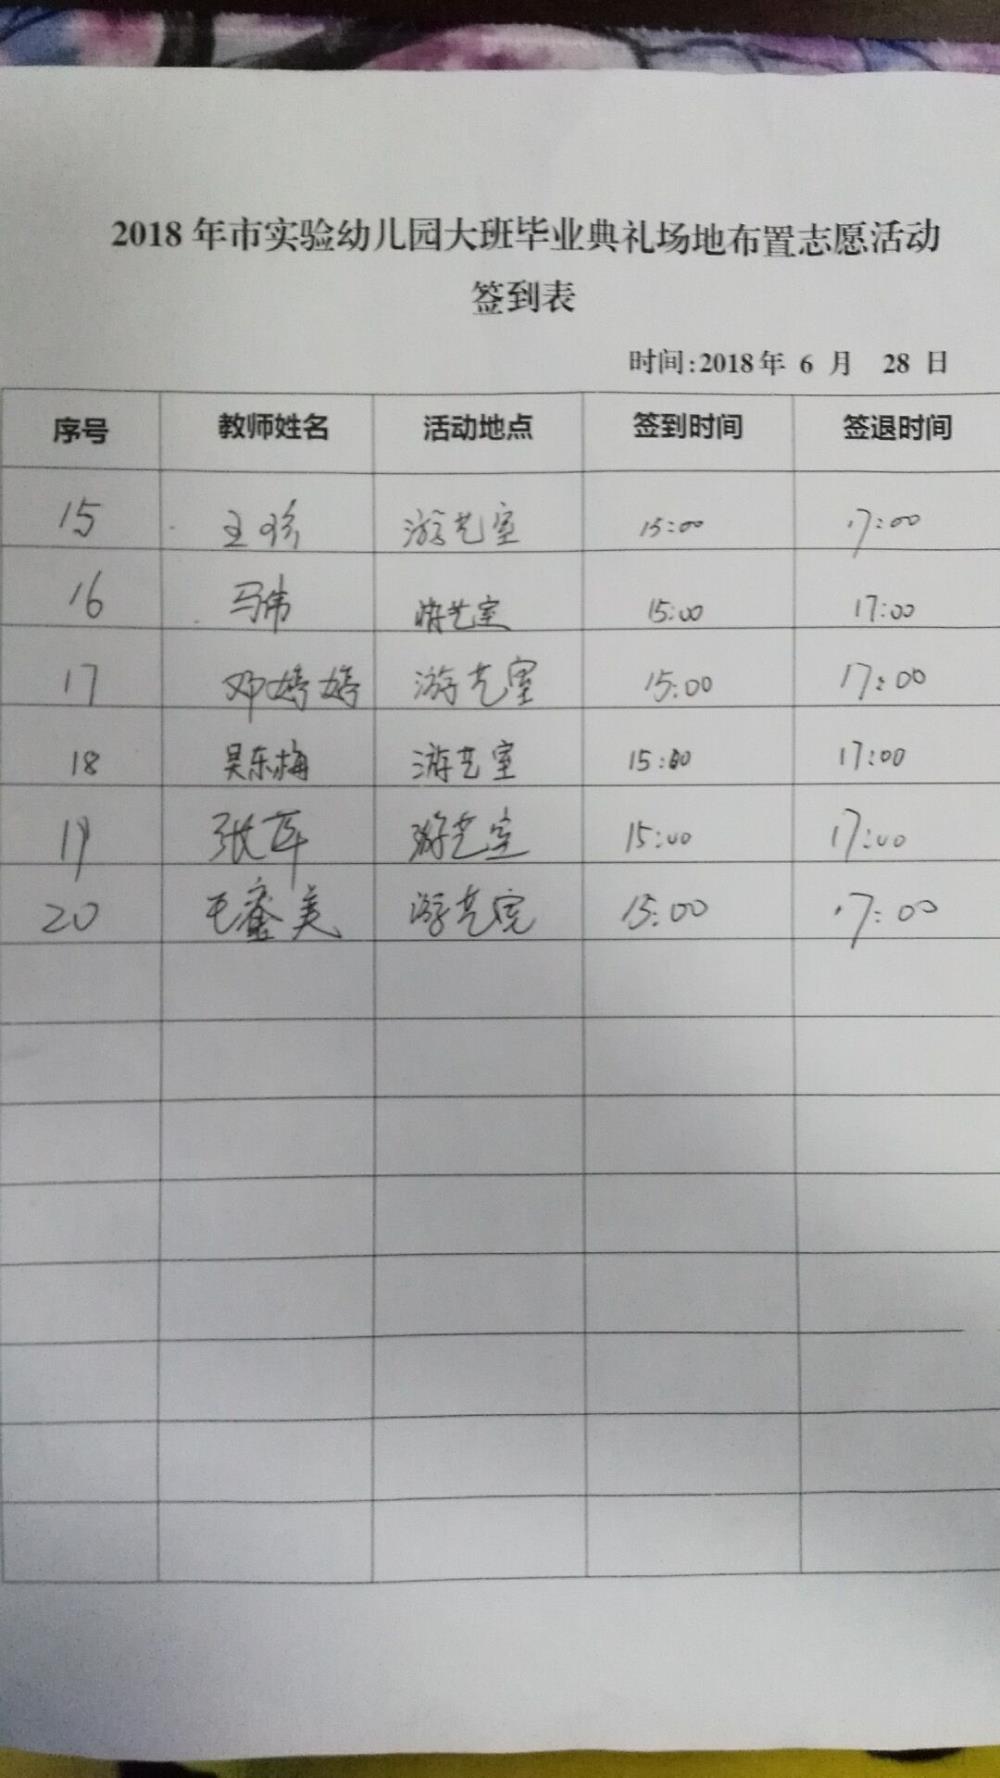 2018年市实验幼儿园大班毕业典礼场地布置志愿活动
签到表
时间:2018年 6 月 28 日
序号 教师姓名 活动地点 签到时间 签退时间
15 王珍 游艺室 15:00 17:00
16 马伟 游艺室 15:00 17:00
17 邓婷婷 游艺室 15:00 17:00
18 吴东梅 游艺室 15:00 17:00
19 张 游艺室 15:00 17:00
20 毛 美 游艺室 15:00 17:00